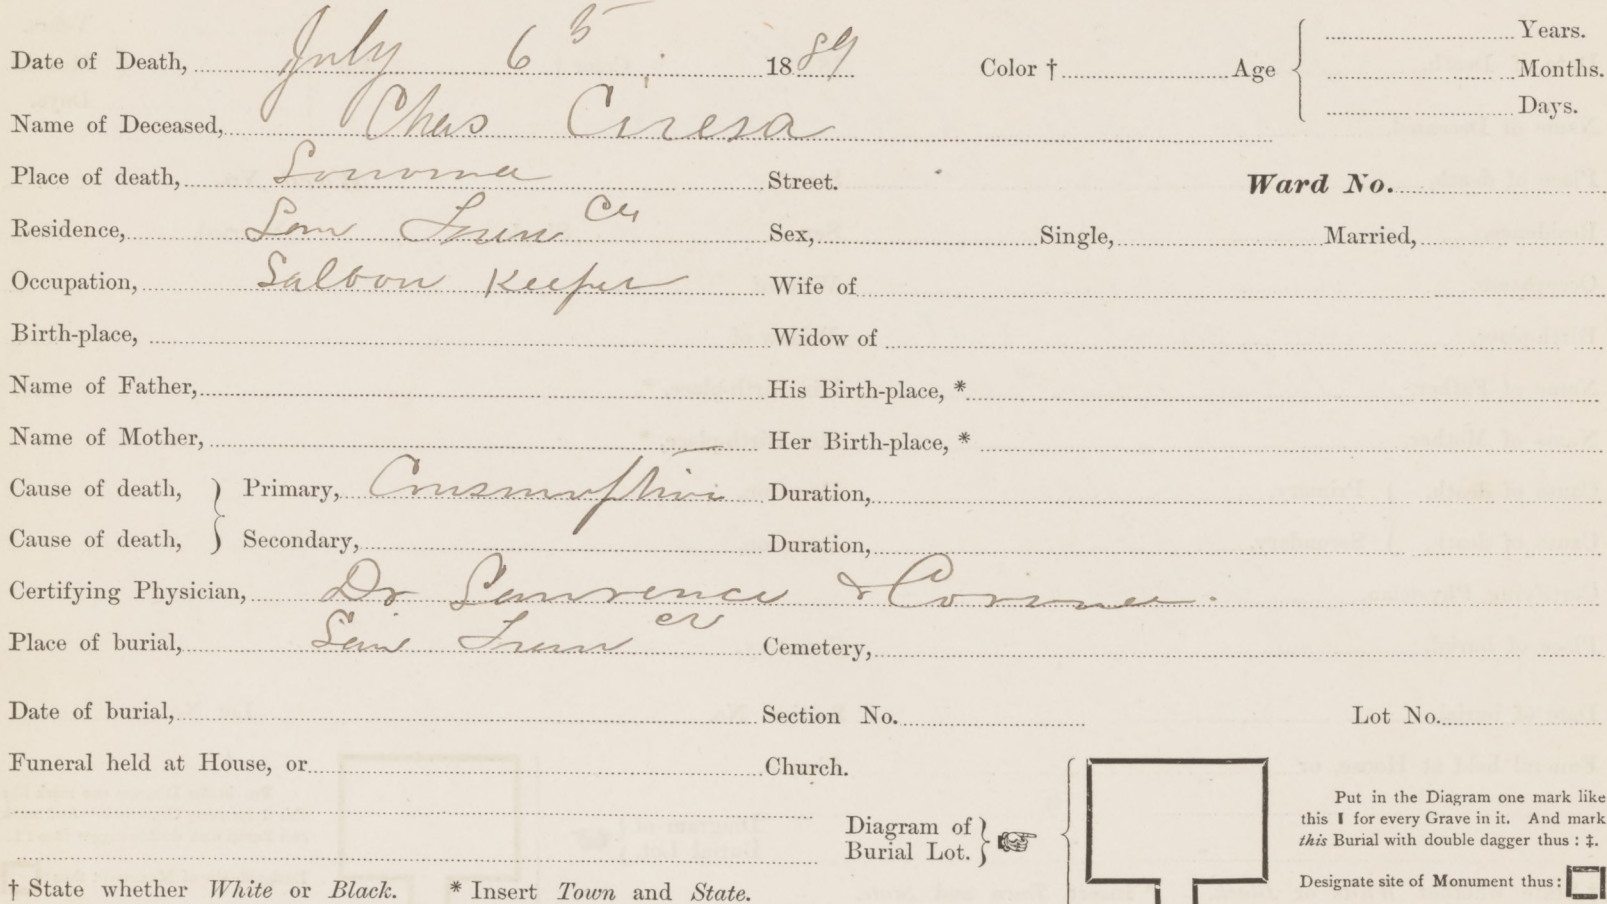 Date of Death, July 6 5 1889 Color † Age Years.
Months.
Days.
Name of Deceased, Chas Ciresa
Place of death, Sonoma Street. Ward No.
Residence, San Fran Co Sex, Single, Married,
Occupation, Saloon Keeper Wife of
Birth-place, Widow of
Name of Father, His Birth-place, *
Name of Mother, Her Birth-place, *
Cause of death, Primary, Consumption Duration,
Cause of death, Secondary, Duration,
Certifying Physician, Dr Lawrence & Coroner.
Place of burial, San Fran Cemetery,
Date of burial, Section No. Lot No.
Funeral held at House, or Church.
Diagram of
Burial Lot.
Put in the Diagram one mark like
this ❙ for every Grave in it. And mark
this Burial with double dagger thus : ‡.
Designate site of Monument thus :
† State whether White or Black. * Insert Town and State.